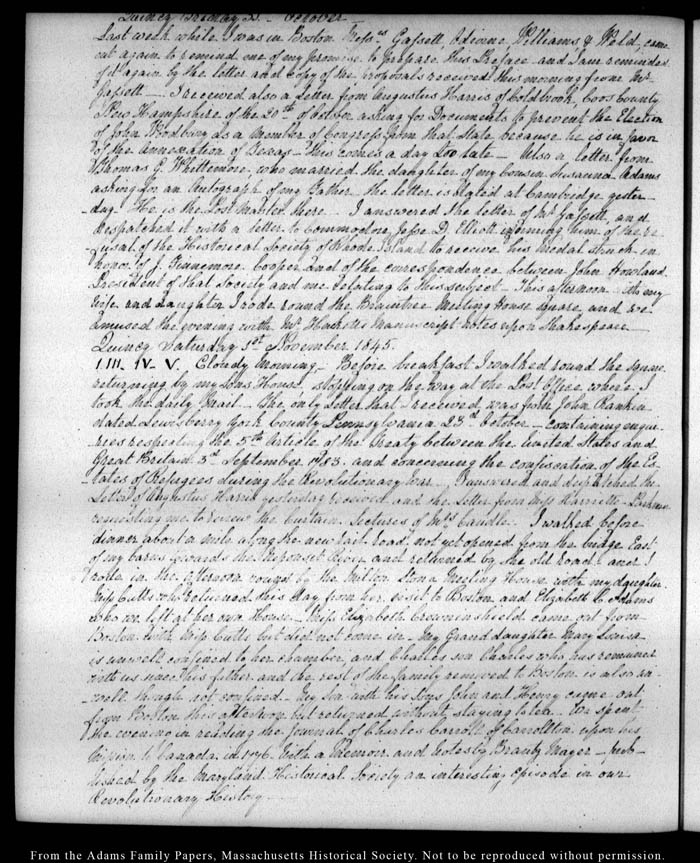 Quincy Friday 31. October
Last week while I was in Boston Messrs Gassett, Odiorne, Williams & Weld, came
out again to remind me of my promise to prepare this Preface and I am reminded
of it again by the letter and copy of the proposals received this morning from Mr
Gassett — I received also a letter from Augustus Harris of Coldbrook, Coos County
New Hampshire of the 20th of October asking for Documents to prevent the Election
of John Woodbury as a Member of Congress from that State because he is in favor
of the Annexation of Texas — This comes a day too late — Also a letter from
Thomas G. Whittemore, who married the daughter of my Cousin Susanna Adams
asking for an Autograph of my Father the letter is dated at Cambridge yester-
-day. He is the Post Master there. I answered the letter of Mr Gassett, and
despatched it with a letter to Commodore Jesse D. Elliott informing him of the re-
-fusal of the Historical Society of Rhode Island to receive his Medal struck in
honor of J. Fennemore Cooper and of the correspondence between John Howland
President of that Society and me relating to this subject — This afternoon with my
wife and daughter I rode round the Braintree Meeting House square, and we
amused the evening with Mr Hackett's Manuscript notes upon Shakespeare
Quincy Saturday 1st November 1845.
I. III. IV. V. Cloudy Morning — Before breakfast I walked round the square
returning by my Sons House, stopping on the way at the Post Office where I
took the daily Mail — The only Letter that I received, was from John Rankin
dated Lewisberry York County Pennsylvania 23d October — containing enqui-
ries respecting the 5th Article of the Treaty between the United States and
Great Britain 3d September 1783. and concerning the confiscation of the Es-
tates of Refugees during the Revolutionary War. I answered and despatched the
Letter of Augustus Harris yesterday received and the Letter from Miss Harriette
requesting me to review the Curtain Lectures of Mrs Caudle. I walked before
dinner about a mile along the new rail road not yet opened from the bridge East
of my barns towards the Neponset River and returned by the old road. and I
rode in the afternoon round by the Milton Stone Meeting House with my daughter
Miss Cutts who returned this day from her visit to Boston and Elizabeth C. Adams
who we left at her own House — Miss Elizabeth Crowninshield came out from
Boston with Miss Cutts but did not come in — My Granddaughter Mary Louisa
is unwell confined to her chamber, and Charles's son Charles who has remained
with us since his father and the rest of the family removed to Boston is also un-
well though not confined — My Son with his Sons John and Henry came out
from Boston this afternoon but returned without staying to tea. We spent
the evening in reading the Journal of Charles Carroll of Carrollton upon his
Mission to Canada in 1776. with a Memoir and notes by Brantz Mayer — pub-
lished by the Maryland Historical Society an interesting episode in our
Revolutionary History —
From the Adams Family Papers, Massachusetts Historical Society. Not to be reproduced without permission.